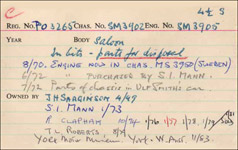 C 4¼ S
REG. NO. PO 3265 CHAS. NO. SM3902 ENG. NO. SM3905
YEAR BODY Saloon
In bits - parts for disposal
8/70. ENGINE NOW IN CHAS. MS3950 (SWEDEN)
6/72 " PURCHASED BY S.L. MANN.
7/72 Parts of chassis in D.L.P. Smith's car
OWNED BY JH SARGINSON 4/49
S.L. MANN 1/73
R CLAPHAM 10/74 1/76 1/77 1/78
T.L. ROBERTS 8/79
York Motor Museum, York. W. Aust 11/83.